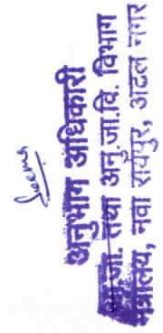 अनुभाग अधिकारी
आ.जा. तथा अनु.जा.वि. विभाग
मंत्रालय, नवा रायपुर, अटल नगर